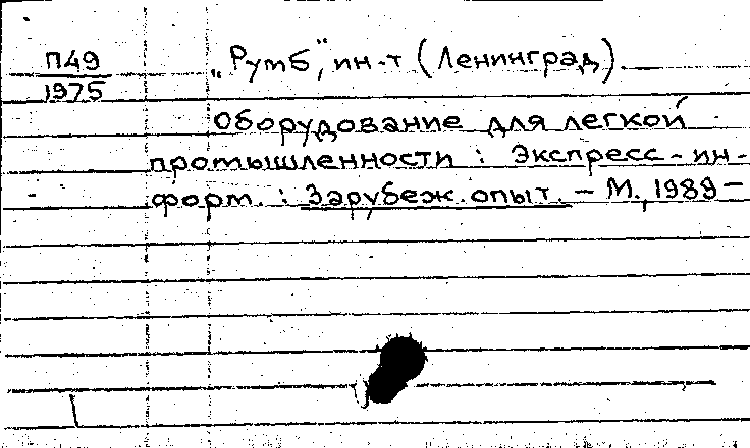 П49 „Румб", ин-т (Ленинград).
1975
Оборудование для легкой
промышленности : Экспресс-ин-
форм. : Зарубеж. опыт. – М., 1989 –